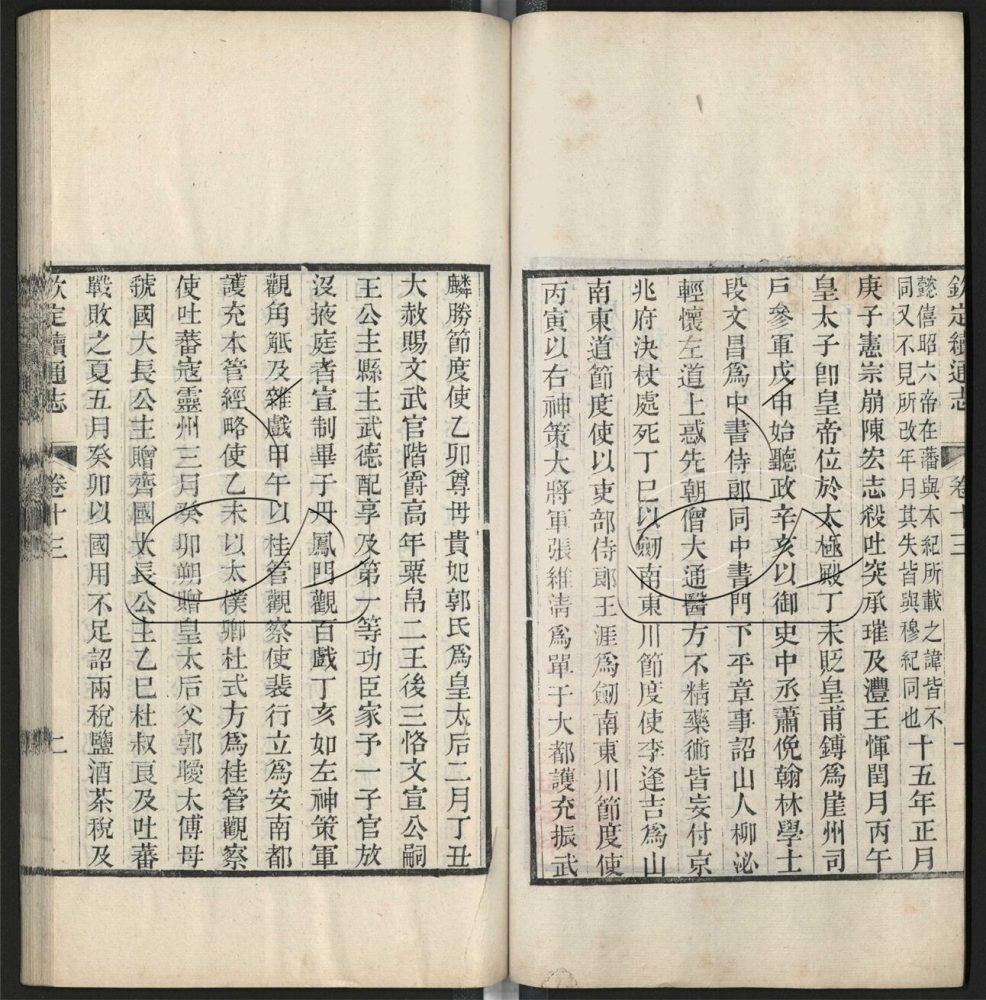 欽定續通志 卷十三 一
懿僖昭六帝在藩與本紀所載之諱皆不
同又不見所改年月其失皆與穆紀同也
十五年正月
庚子憲宗崩陳宏志殺吐突承璀及灃王惲閏月丙午
皇太子卽皇帝位於太極殿丁未貶皇甫鎛爲崖州司
戶參軍戊申始聽政辛亥以御史中丞蕭俛翰林學士
段文昌爲中書侍郎同中書門下平章事詔山人柳泌
輕懷左道上惑先朝僧大通醫方不精藥術皆妄付京
兆府決杖處死丁巳以劒南東川節度使李逢吉爲山
南東道節度使以吏部侍郎王涯爲劒南東川節度使
丙寅以右神策大將軍張維淸爲單于大都護充振武
麟勝節度使乙卯尊母貴妃郭氏爲皇太后二月丁丑
大赦賜文武官階爵高年粟帛二王後三恪文宣公嗣
王公主縣主武德配享及第一等功臣家予一子官放
沒掖庭者宣制畢于丹鳳門觀百戲丁亥如左神策軍
觀角觝及雜戲甲午以桂管觀察使裴行立爲安南都
護充本管經略使乙未以太僕卿杜式方爲桂管觀察
使吐蕃寇靈州三月癸卯朔贈皇太后父郭曖太傅母
虢國大長公主贈齊國大長公主乙巳杜叔良及吐蕃
戰敗之夏五月癸卯以國用不足詔兩稅鹽酒茶稅及
欽定續通志 卷十三 二